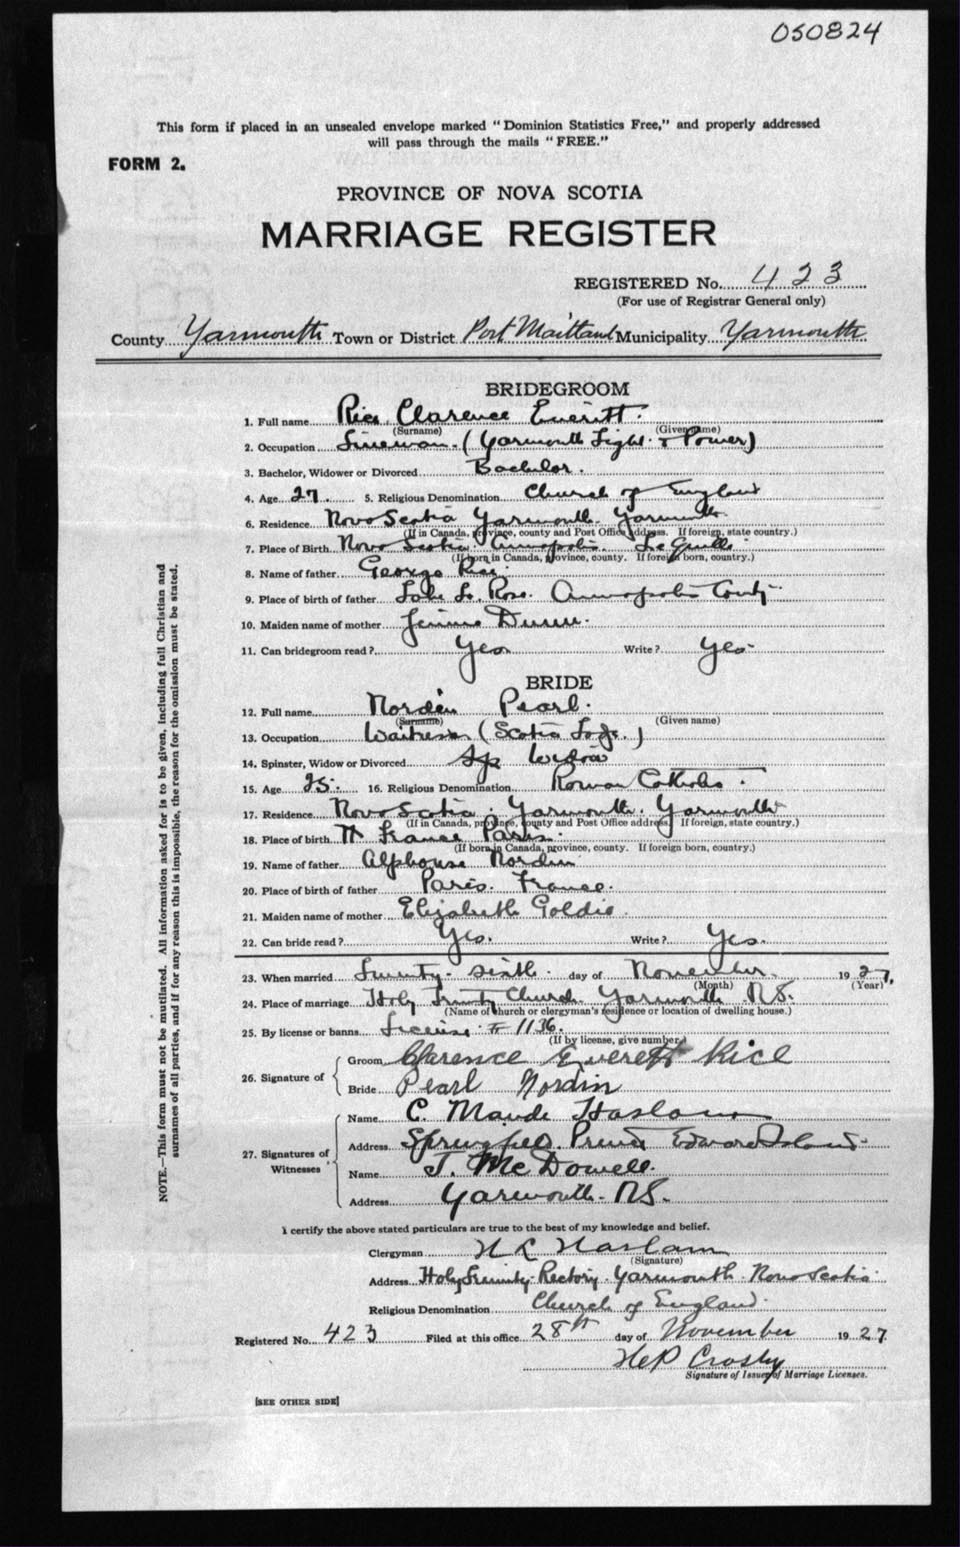 050824
This form if placed in an unsealed envelope marked "Dominion Statistics Free," and properly addressed
will pass through the mails "FREE."
FORM 2.
PROVINCE OF NOVA SCOTIA
MARRIAGE REGISTER
REGISTERED No. 423
(For use of Registrar General only)
County Yarmouth Town or District Port Maitland Municipality Yarmouth
BRIDEGROOM
1. Full name Rice Clarence Everitt.
(Surname) (Given name)
2. Occupation Lineman (Yarmouth Light & Power)
3. Bachelor, Widower or Divorced Bachelor.
4. Age 27. 5. Religious Denomination Church of England
6. Residence Nova Scotia Yarmouth Yarmouth
(If in Canada, province, county and Post Office address. If foreign, state country.)
7. Place of Birth Nova Scotia Annapolis Le Quille
(If born in Canada, province, county. If foreign born, country.)
8. Name of father George Rice
9. Place of birth of father Lake La Rose. Annapolis County
10. Maiden name of mother Dunn
11. Can bridegroom read? Yes Write? Yes
BRIDE
12. Full name Nordin Pearl.
(Surname) (Given name)
13. Occupation Waitress (Scotia )
14. Spinster, Widow or Divorced Widow
15. Age 25. 16. Religious Denomination Roman Catholic.
17. Residence Nova Scotia. Yarmouth. Yarmouth
(If in Canada, province, county and Post Office address. If foreign, state country.)
18. Place of birth France Paris.
(If born in Canada, province, county. If foreign born, country.)
19. Name of father Alphonse Nordin
20. Place of birth of father Paris. France.
21. Maiden name of mother Elizabeth Goldie
22. Can bride read? Yes. Write? Yes.
23. When married Twenty-sixth day of November. 1927.
(Month) (Year)
24. Place of marriage Holy Trinity Church Yarmouth N.S.
(Name of church or clergyman's residence or location of dwelling house.)
25. By license or banns License # 1136.
(If by license, give number.)
26. Signature of
Groom Clarence Everett Rice
Bride Pearl Nordin
27. Signatures of Witnesses
Name C. Maude Haslam
Address Springfield. Prince Edward Island
Name J. McDowell.
Address Yarmouth. N.S.
I certify the above stated particulars are true to the best of my knowledge and belief.
Clergyman Haslam
(Signature)
Address Holy Trinity Rectory. Yarmouth. Nova Scotia
Religious Denomination Church of England.
Registered No. 423 Filed at this office 28th day of November 1927
Crosby
Signature of Issuer of Marriage Licenses.
[SEE OTHER SIDE]
NOTE.—This form must not be mutilated. All information asked for is to be given, including full Christian and
surnames of all parties, and if for any reason this is impossible, the reason for the omission must be stated.